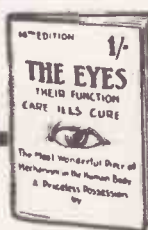 60TH EDITION
1/-
THE EYES
THEIR FUNCTION
CARE ILLS CURE
The Most Wonderful Piece of
Mechanism in the Human Body
A Priceless Possession
by